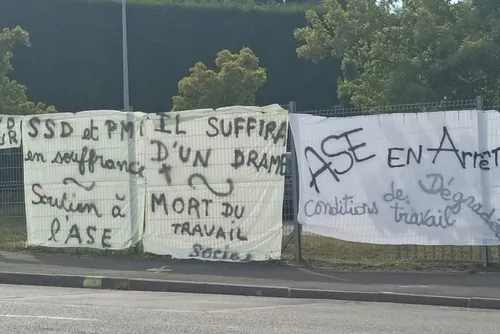 SSD et PMI
en souffrance
~
Soutien à
l'ASE
IL SUFFIRA
D'UN DRAME
~
MORT DU
TRAVAIL
Social
ASE EN Arrêt
Conditions de travail